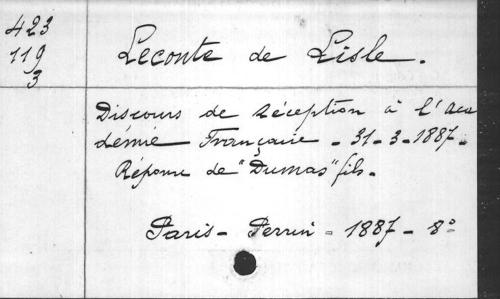 423
119
3
Leconte de Lisle.
Discours de réception à l'Aca
démie Française - 31-3-1887-
Réponse de "Dumas" fils.
Paris - Perrin - 1887 - 8°